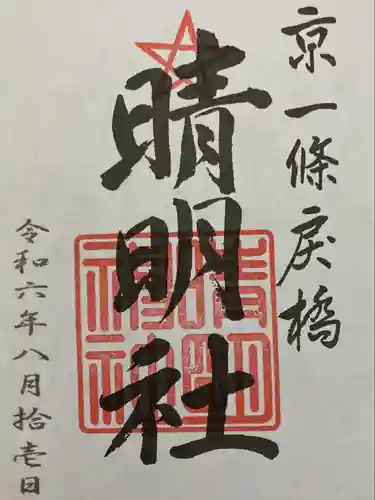 京一條戻橋
晴明社
晴明
神社
令和六年八月拾壱日